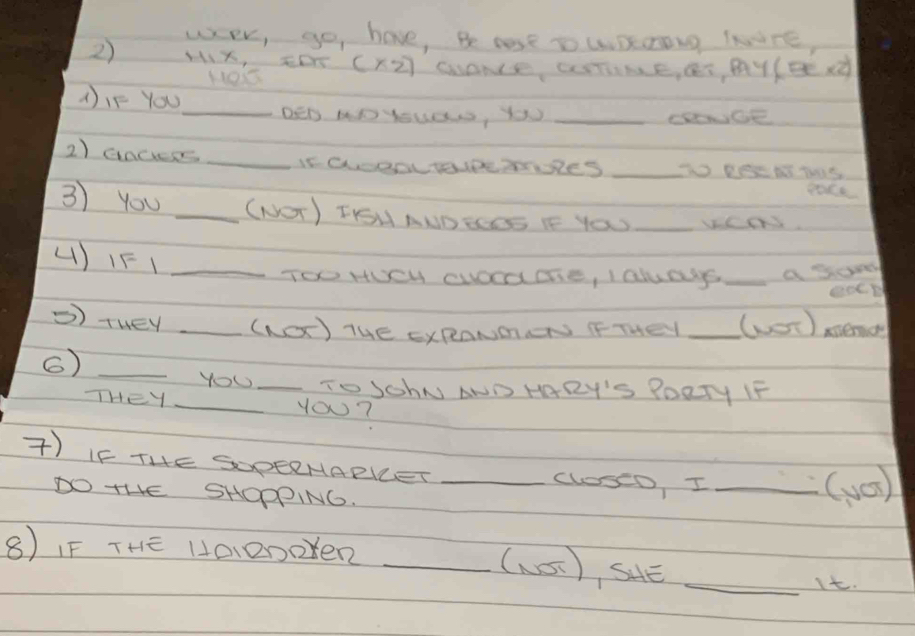 2) WORK, go, have, BE ABLE TO UNDERSTAND, INVITE,
MIX, EAT (x2) CHANGE, CONTINUE, GET, PAY (BE x2)
1) IF YOU ____ RED AND YELLOW, YOU ____ ORANGE
2) GLACIERS ____ IF GLOBAL TEMPERATURES ____ TO RISE AT THIS
PACE
3) YOU ____ (NOT) FISH AND EGGS IF YOU ____ VEGAN.
4) IF I ____ TOO MUCH CHOCOLATE, I always ____ a
5) THEY ____ (NOT) THE EXPLANATION IF THEY ____ (NOT) ATTENTION
6) ____ YOU ____ TO JOHN AND MARY'S PARTY IF
THEY ____ YOU?
7) IF THE SUPERMARKET ____ CLOSED, I ____ (NOT)
DO THE SHOPPING.
8) IF THE HAIRDRYER ____ (NOT), SHE ____ it.